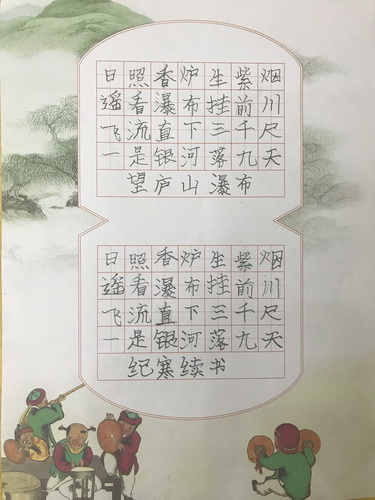 日照香炉生紫烟
遥看瀑布挂前川
飞流直下三千尺
一是银河落九天
望庐山瀑布
日照香炉生紫烟
遥看瀑布挂前川
飞流直下三千尺
一是银河落九天
纪寒续书